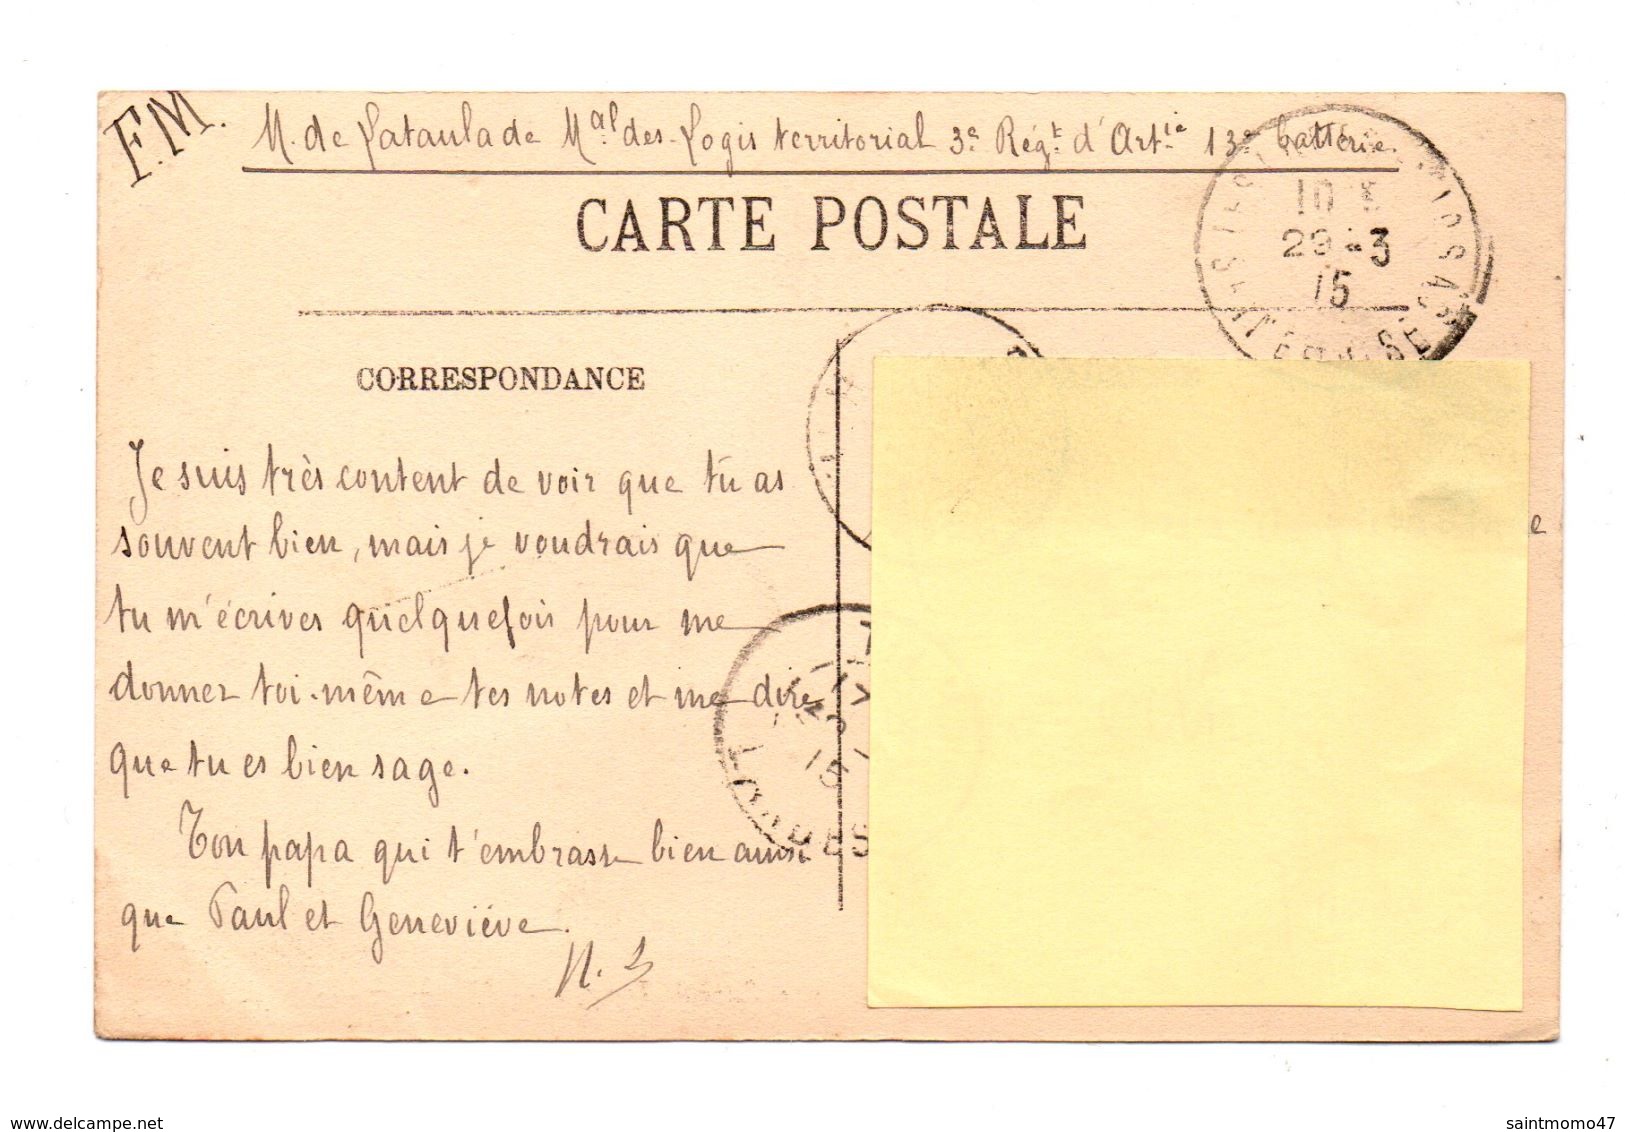 F.M.
M. de Lataulade Mal des Logis territorial 3e Régt d'Artie 13e batterie
CARTE POSTALE
10
29 -3
15
CORRESPONDANCE
Je suis très content de voir que tu as
souvent bien, mais je voudrais que
tu m'écrives quelquefois pour me
donner toi-même tes notes et me dire
que tu es bien sage.
Ton papa qui t'embrasse bien ainsi
que Paul et Geneviève.
e
www.delcampe.net
saintmomo47